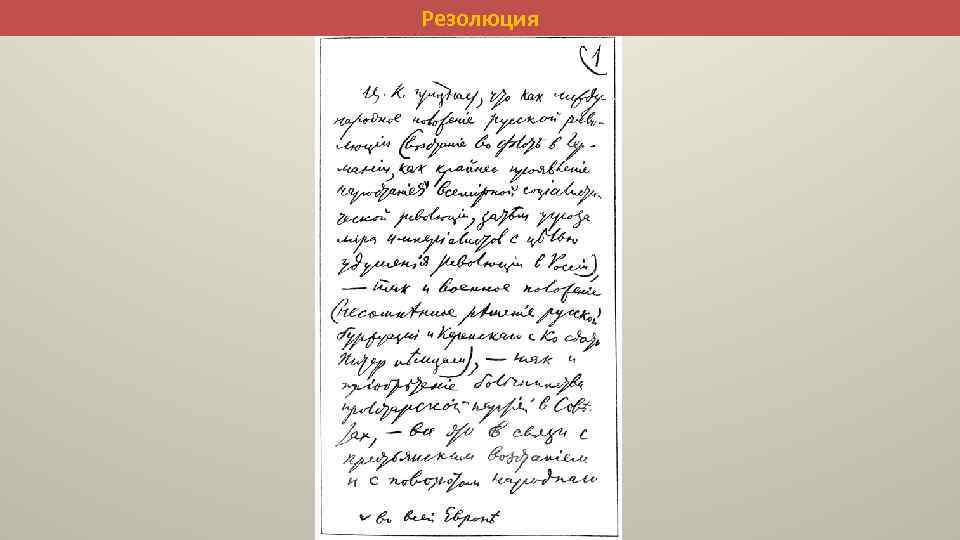 Резолюция
1
Ц. К. признает, что как между-
народное положение русской рево-
люціи (возстание во флотѣ в Гер-
маніи, как крайнее проявленіе
наростанія всемірной соціалисти-
ческой революціи, затѣм угроза
мира имперіалистов с цѣлью
удушенія революціи в Россіи),
— так и военное положеніе
(несомнѣнное рѣшеніе русской
буржуазіи и Керенскаго с Ко сдать
Питер нѣмцам), — так и
пріобрѣтеніе большинства
пролетарской партіей в Совѣ-
тах, — все это в связи с
крестьянским возстаніем
и с поворотом народнаго
v во всей Европѣ